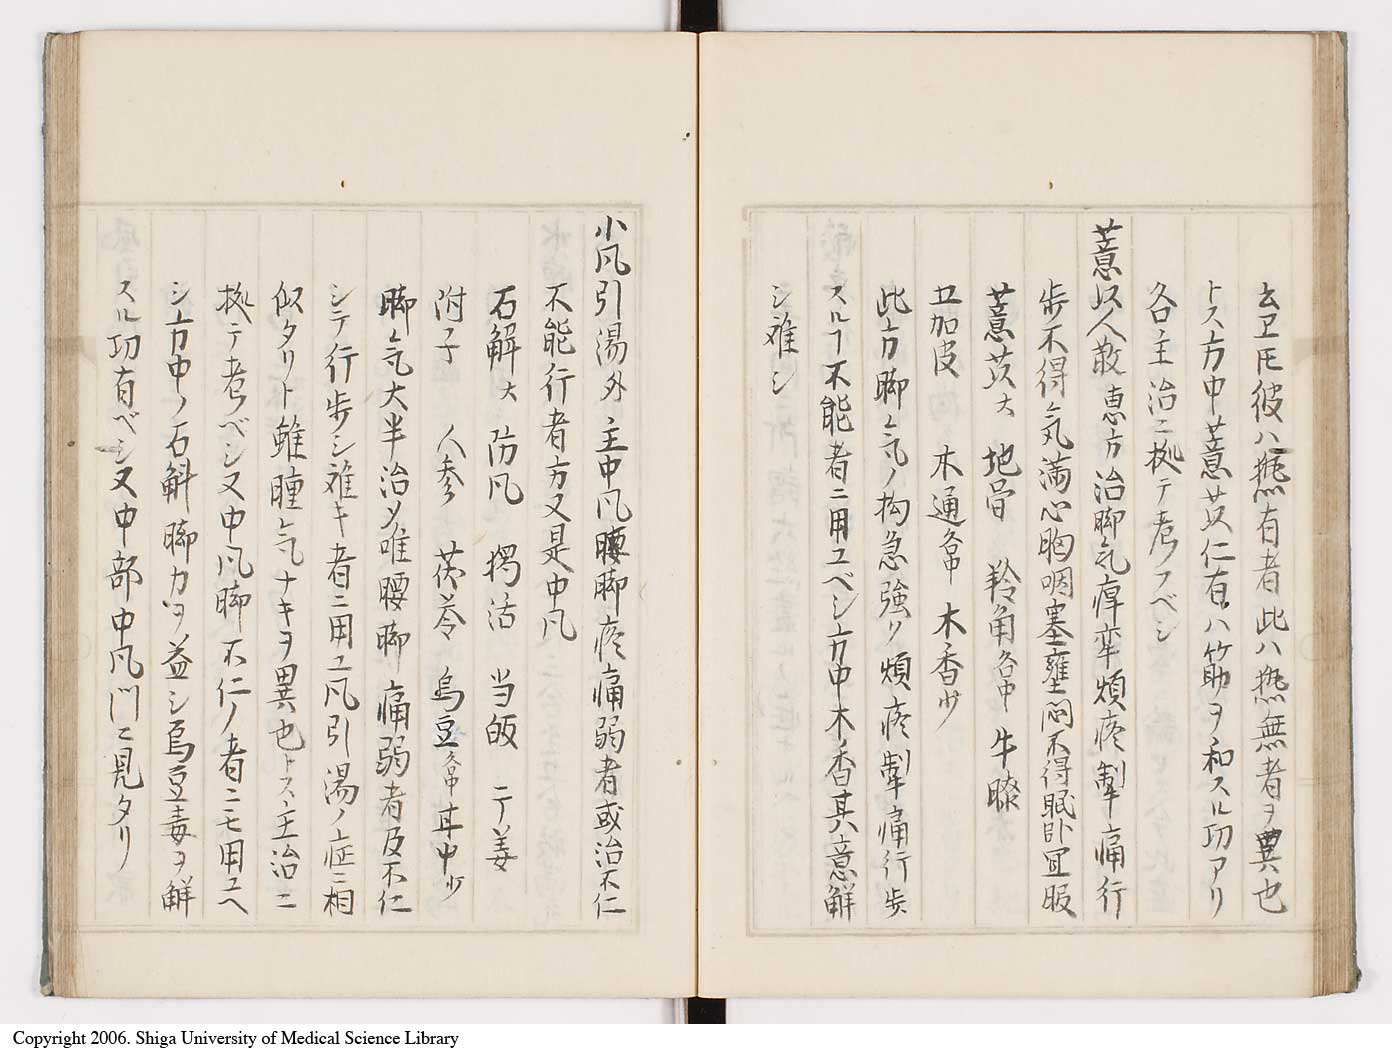 云ㇸ𪜈彼ハ㷱有者此ハ㷱無者ヲ異也
トス方中薏苡仁有ハ筋ヲ和スル功アリ
各主治ニ拠テ考フベシ
薏苡人散恵方治脚气痺牽煩疼掣痛行
歩不得气満心胸咽塞壅悶不得眠卧宜服
薏苡大 地骨 羚角各中 牛膝
五加皮 木通各中 木香少
此方脚气ノ拘急強ク煩疼掣痛行歩
スルヿ不能者ニ用ユベシ方中木香其意解
シ难シ
小凡引湯外主中凡腰脚疼痛弱者或治不仁
不能行者方又是中凡
石解大 防凡 獨活 当皈 干姜
附子 人参 茯苓 烏豆各中 甘中少
脚气大半治〆唯腰脚痛弱者及不仁
シテ行歩シ难キ者ニ用ユ凡引湯ノ症ニ相
似タリト雖腫气ナキヲ異也トス主治ニ
拠テ考ベシ又中凡脚不仁ノ者ニモ用ユヘ
シ方中ノ石斛脚力ヲ益シ烏豆毒ヲ解
スル功有ベシ又中部中凡門ニ見タリ
Copyright 2006. Shiga University of Medical Science Library